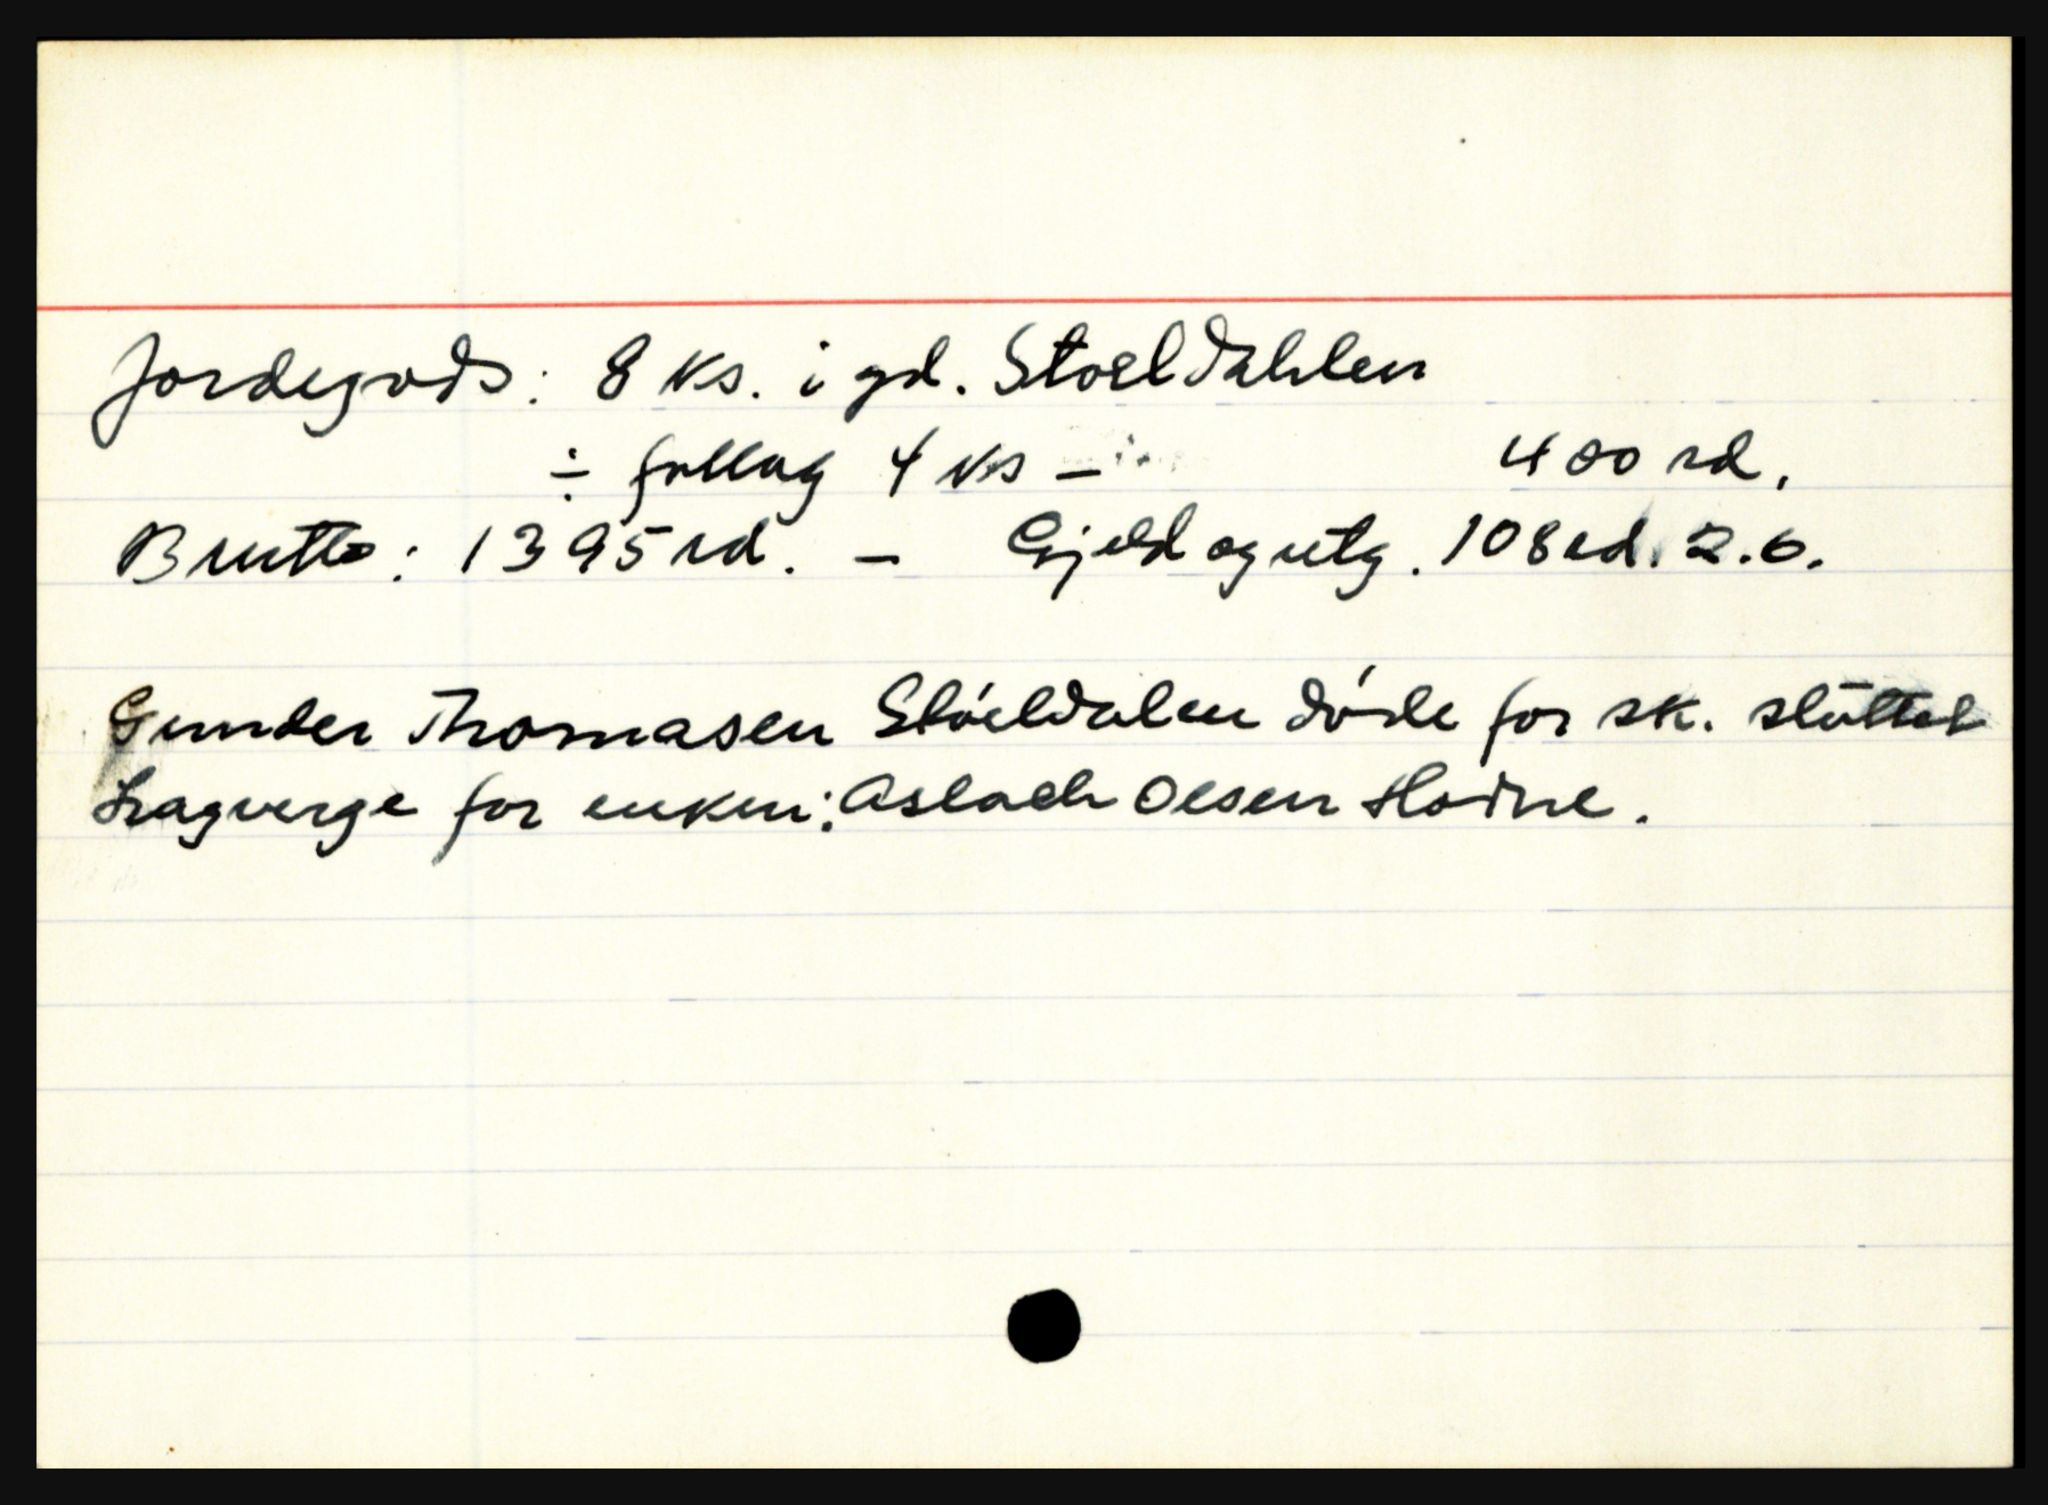 Jordegods: 8 ks. i gd. Stoeldahlen
÷ follug 4 ks – 400 rd.
Brutto: 1395 rd. – Gjeld og utg. 108 rd. 2.6.
Gunder Thomasen Stóeldalen døde for sk. sluttet
Lagverge for enken: Aslach Olsen Hodne.